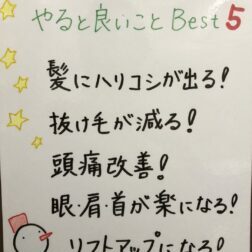 やると良いこと Best 5
髪にハリコシが出る!
抜け毛が減る!
頭痛改善!
眼・肩・首が楽になる!
リフトアップになる!